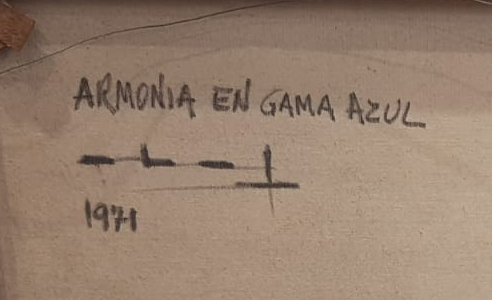 ARMONIA EN GAMA AZUL
1971